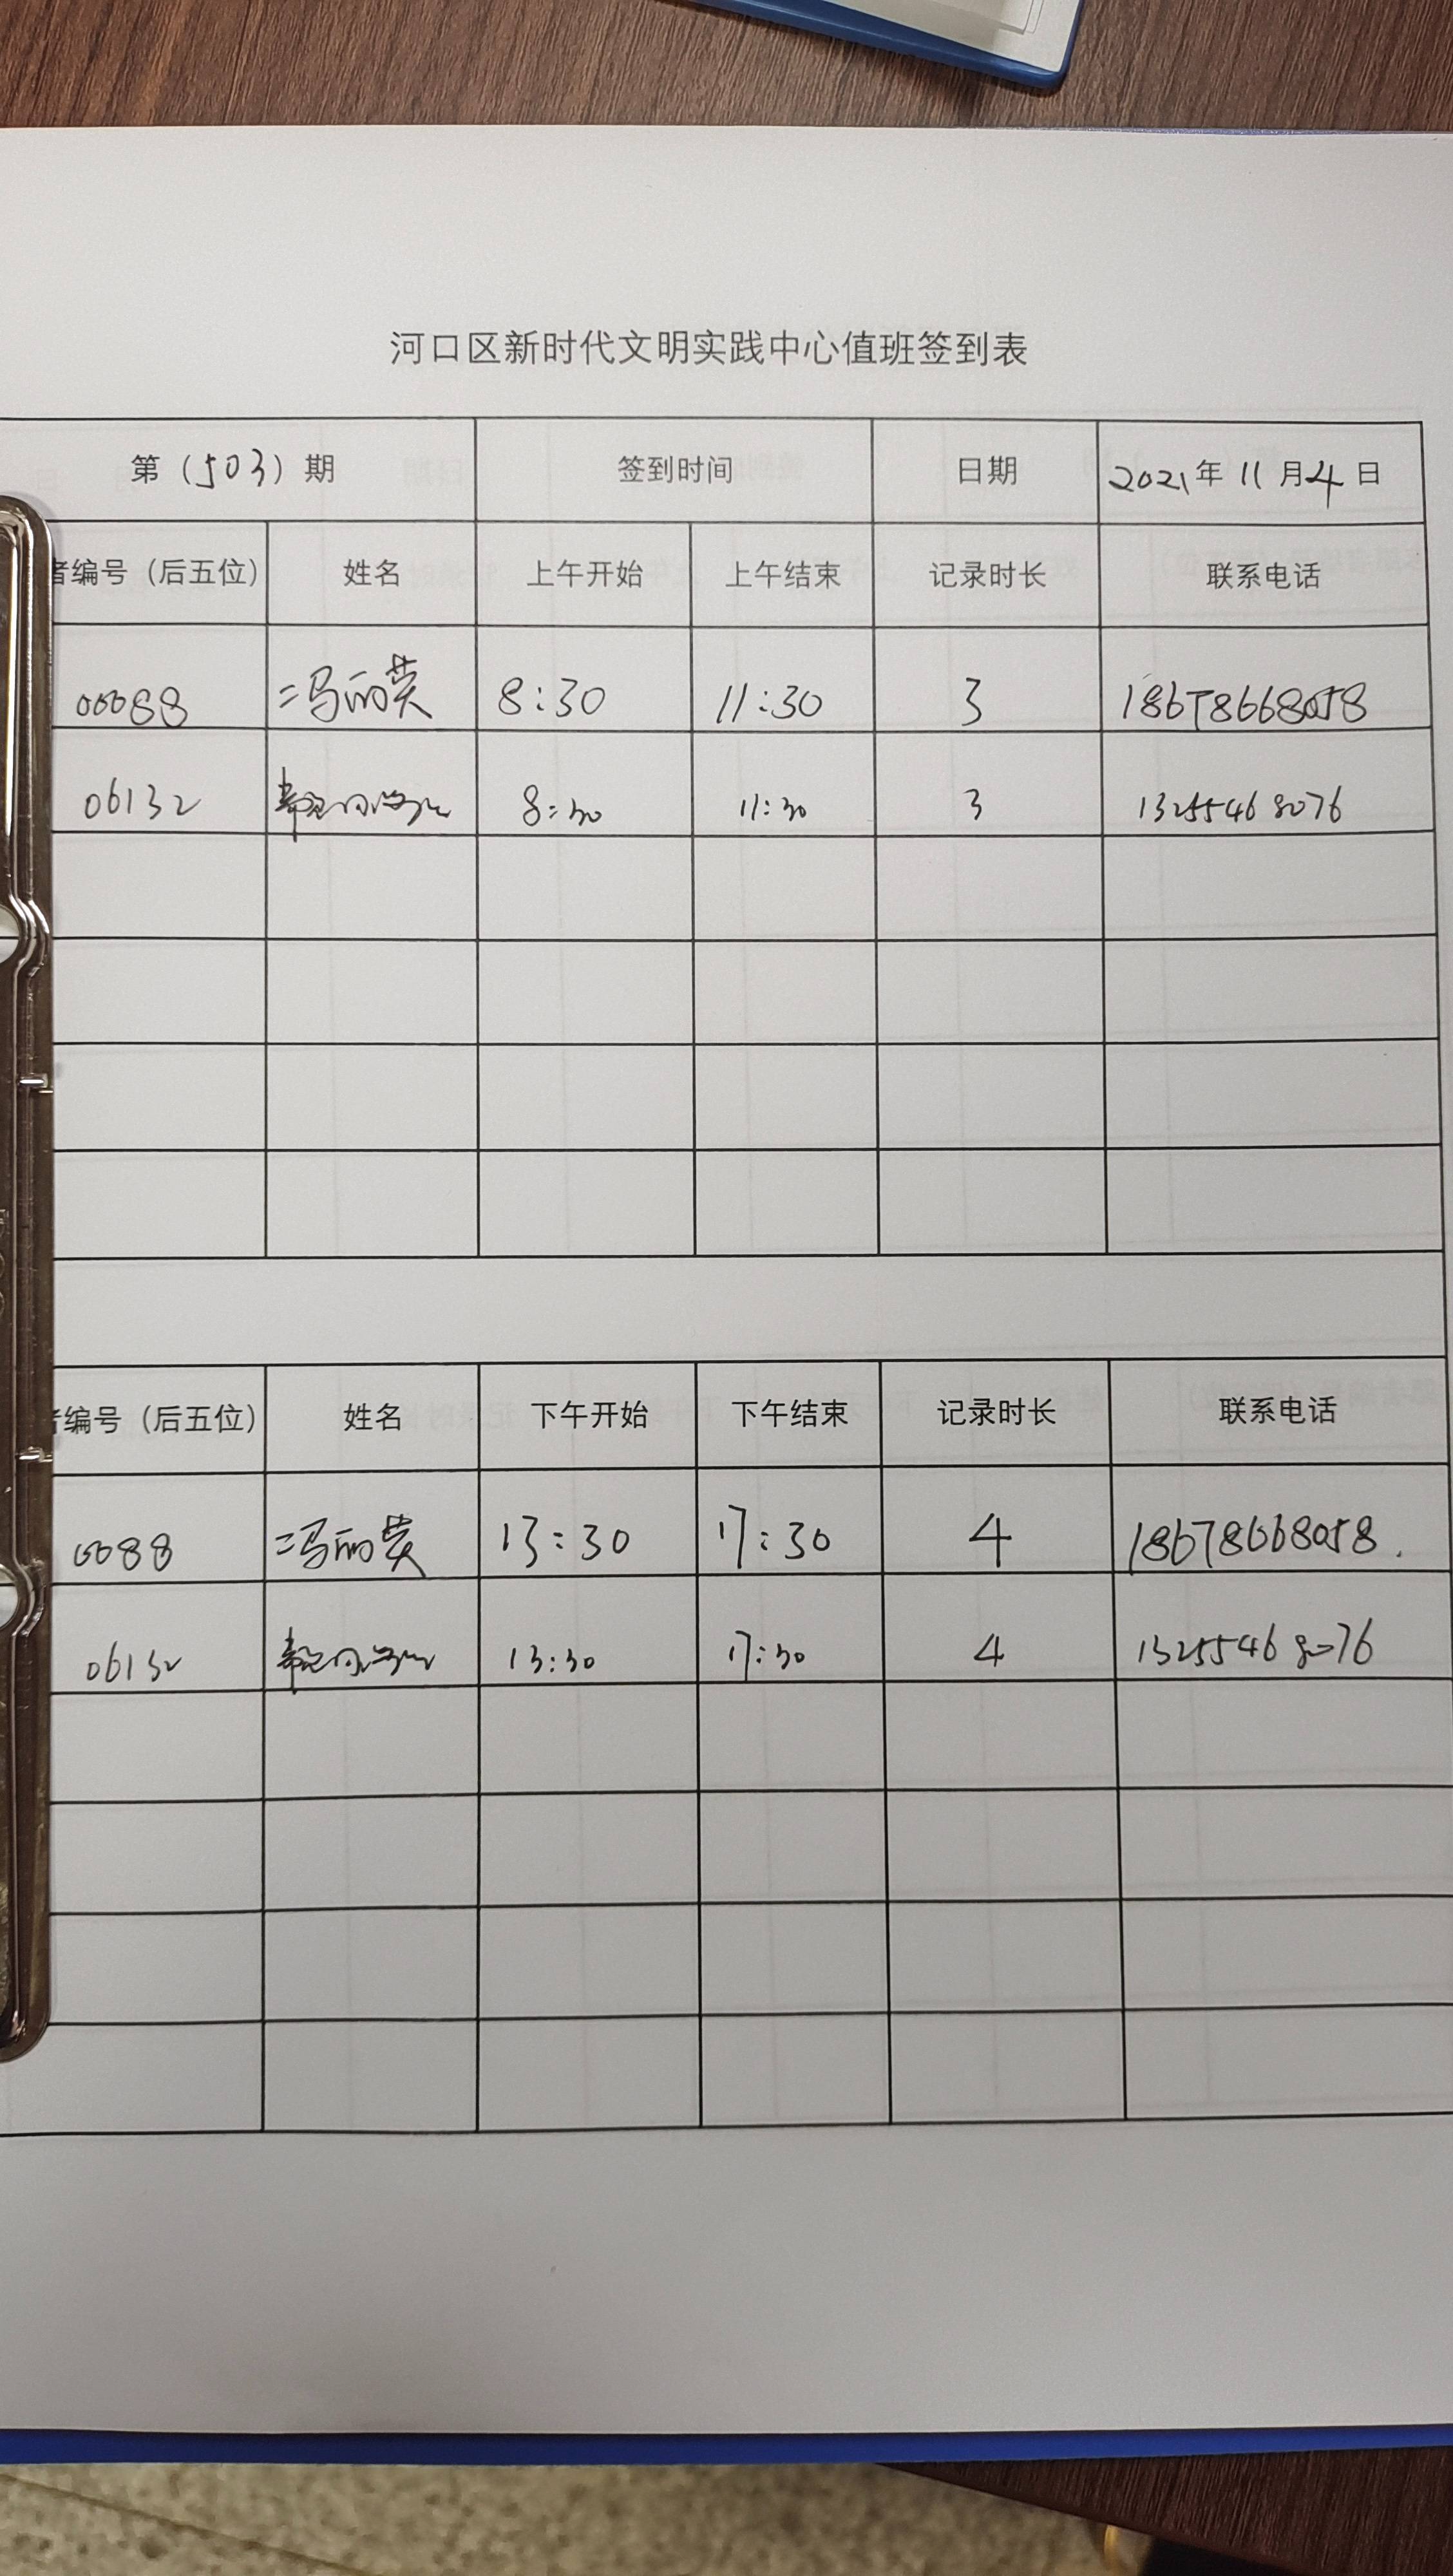 河口区新时代文明实践中心值班签到表
第（503）期 签到时间 日期 2021年11月4日
者编号（后五位） 姓名 上午开始 上午结束 记录时长 联系电话
00088 冯丽英 8:30 11:30 3 18678668058
06132 8:30 11:30 3 13255468076
编号（后五位） 姓名 下午开始 下午结束 记录时长 联系电话
0088 冯丽英 13:30 17:30 4 18678668058.
06132 13:30 17:30 4 13255468076